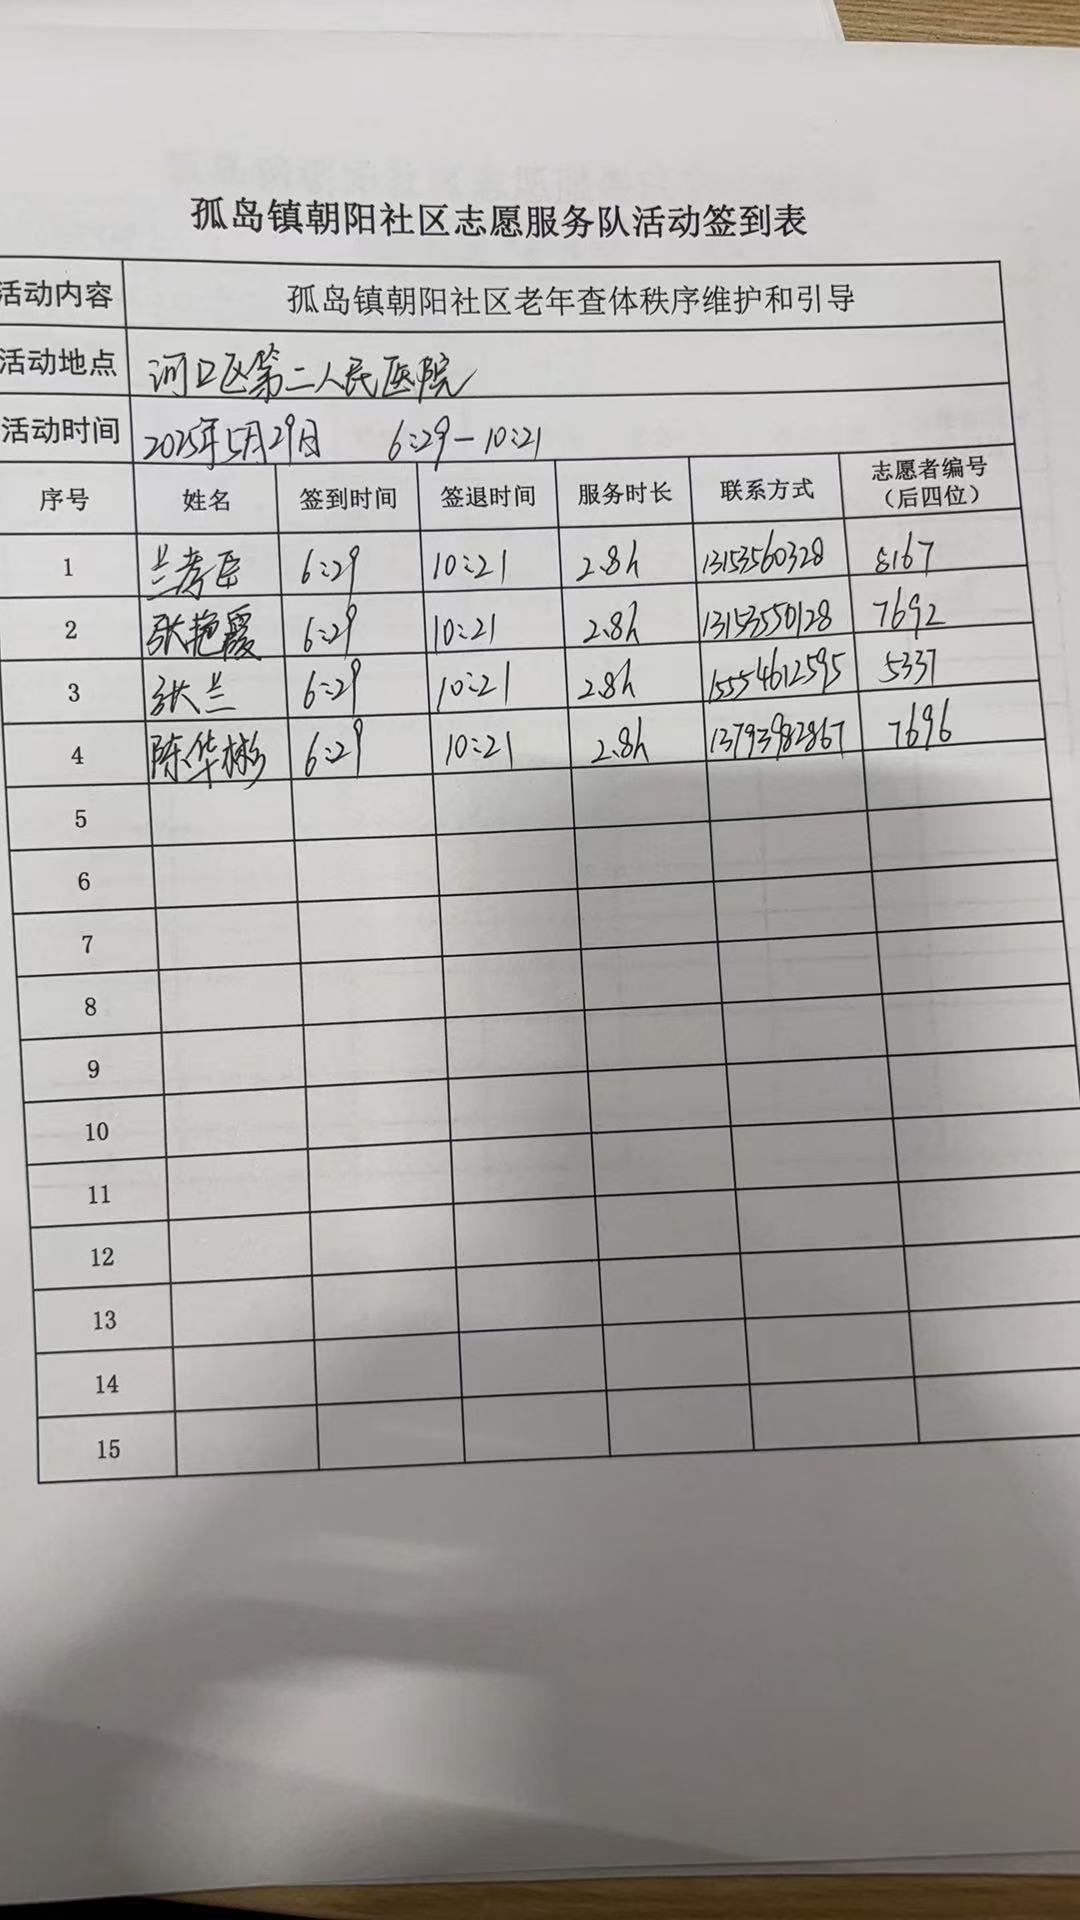 孤岛镇朝阳社区志愿服务队活动签到表
活动内容 孤岛镇朝阳社区老年查体秩序维护和引导
活动地点 河口区第二人民医院
活动时间 2025年5月29日 6:29-10:21
序号 姓名 签到时间 签退时间 服务时长 联系方式 志愿者编号（后四位）
1 兰孝臣 6:29 10:21 2.8h 13153560328 8167
2 张艳霞 6:29 10:21 2.8h 13153550128 7692
3 张兰 6:29 10:21 2.8h 15554612595 5337
4 陈华彬 6:29 10:21 2.8h 13793982867 7696
5
6
7
8
9
10
11
12
13
14
15